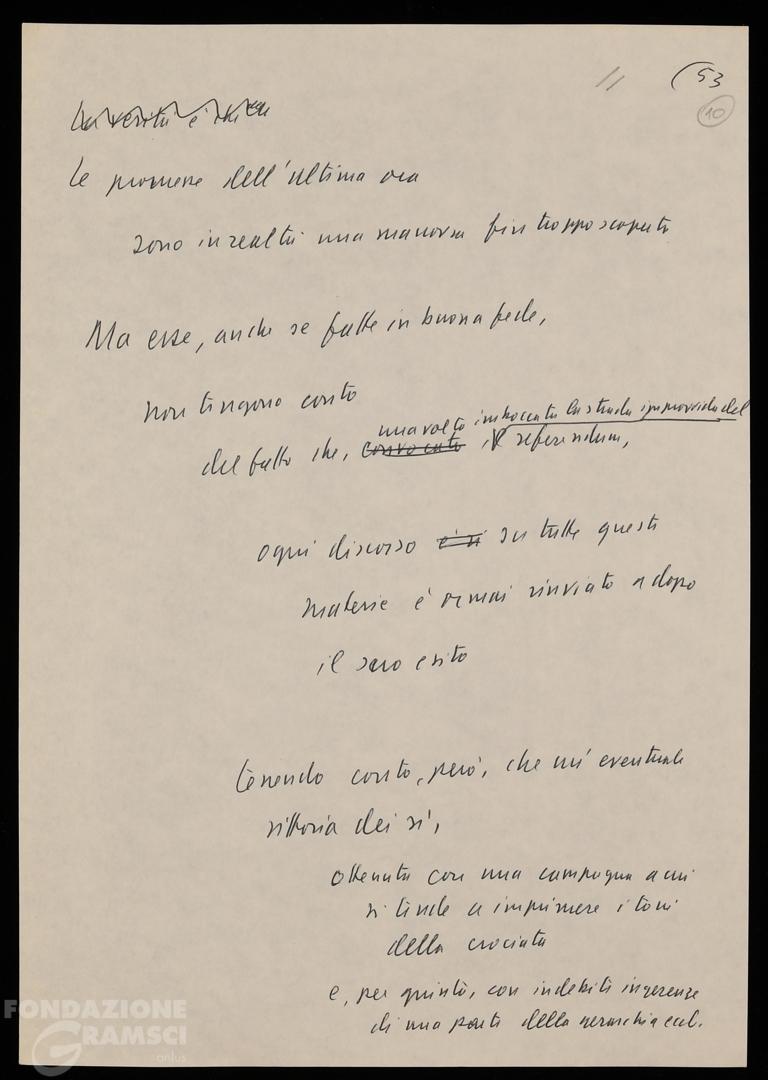 11 (53
10
La verità è che
Le promesse dell'ultima ora
sono in realtà una manovra fin troppo scoperta
Ma esse, anche se fatte in buona fede,
non tengono conto
una volta imboccata la strada improvvida del
del fatto che, convocato il referendum,
ogni discorso su tutte queste
materie è ormai rinviato a dopo
il suo esito
Tenendo conto, però, che un'eventuale
vittoria dei sì,
ottenuta con una campagna a cui
si tende a imprimere i toni
della crociata
e, per giunta, con indebite ingerenze
di una parte della gerarchia eccl.
FONDAZIONE
GRAMSCI
onlus